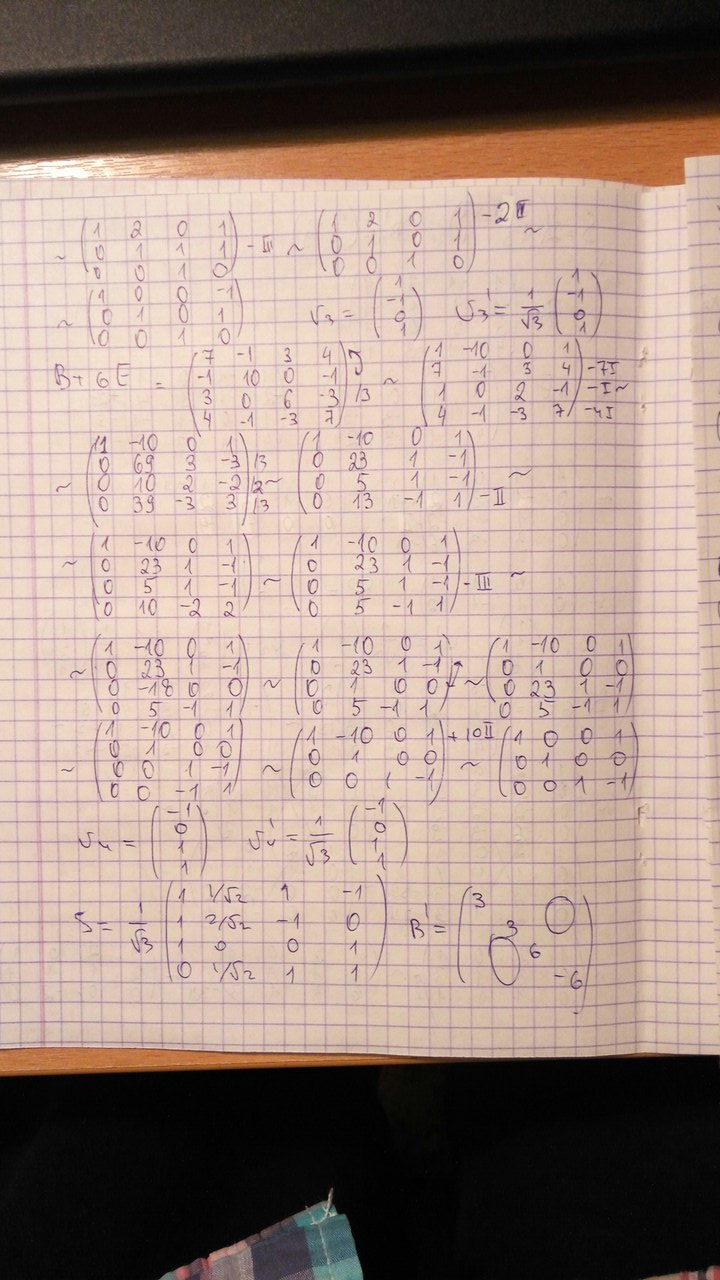 ~ ( 1 2 0 1 ; 0 1 1 1 ; 0 0 1 0 ) - III ~ ( 1 2 0 1 ; 0 1 0 1 ; 0 0 1 0 ) -2II ~
~ ( 1 0 0 -1 ; 0 1 0 1 ; 0 0 1 0 ) v₃ = ( 1 ; -1 ; 0 ; 1 ) v₃' = 1/√3 ( 1 ; -1 ; 0 ; 1 )
B + 6E = ( 7 -1 3 4 ; -1 10 0 -1 ; 3 0 6 -3 ; 4 -1 -3 7 ) /3 ~ ( 1 -10 0 1 ; 7 -1 3 4 ; 1 0 2 -1 ; 4 -1 -3 7 ) -7I -I -4I ~
~ ( 11 -10 0 1 ; 0 69 3 -3 ; 0 10 2 -2 ; 0 39 -3 3 ) /3 /2 /3 ~ ( 1 -10 0 1 ; 0 23 1 -1 ; 0 5 1 -1 ; 0 13 -1 1 ) - II ~
~ ( 1 -10 0 1 ; 0 23 1 -1 ; 0 5 1 -1 ; 0 10 -2 2 ) ~ ( 1 -10 0 1 ; 0 23 1 -1 ; 0 5 1 -1 ; 0 5 -1 1 ) - III ~
~ ( 1 -10 0 1 ; 0 23 1 -1 ; 0 -18 0 0 ; 0 5 -1 1 ) ~ ( 1 -10 0 1 ; 0 23 1 -1 ; 0 1 0 0 ; 0 5 -1 1 ) ~ ( 1 -10 0 1 ; 0 1 0 0 ; 0 23 1 -1 ; 0 5 -1 1 )
~ ( 1 -10 0 1 ; 0 1 0 0 ; 0 0 1 -1 ; 0 0 -1 1 ) ~ ( 1 -10 0 1 ; 0 1 0 0 ; 0 0 1 -1 ) +10II ~ ( 1 0 0 1 ; 0 1 0 0 ; 0 0 1 -1 )
v₄ = ( -1 ; 0 ; 1 ; 1 ) v₄' = 1/√3 ( -1 ; 0 ; 1 ; 1 )
S = 1/√3 ( 1 1/√2 1 -1 ; 1 2/√2 -1 0 ; 1 0 0 1 ; 0 1/√2 1 1 ) B' = ( 3 3 6 -6 0 0 )